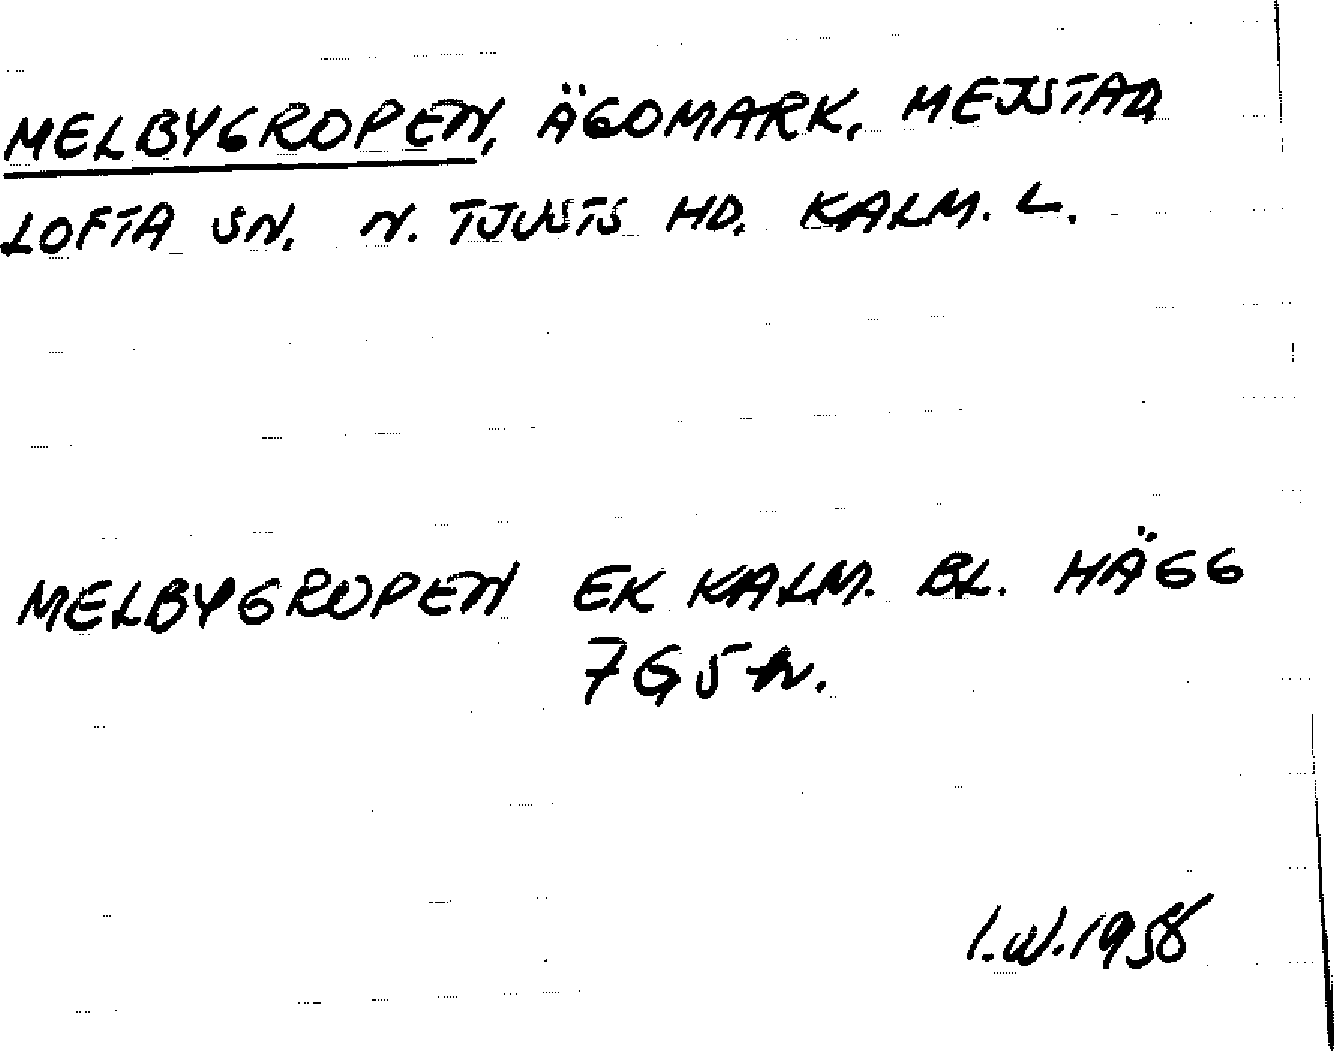 MELBYGROPEN, ÄGOMARK, MEJSTAD
LOFTA SN. N. TJUSTS HD. KALM. L.
MELBYGROPEN EK KALM. BL. HÄGG
7G5n.
I.W.1958